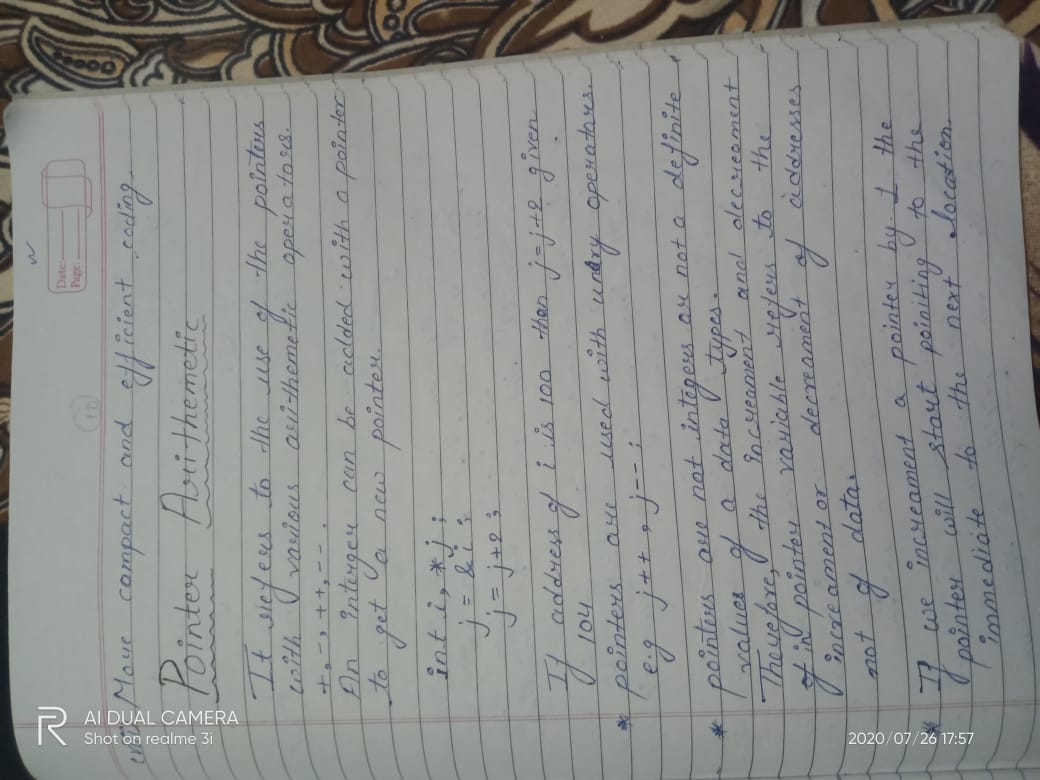 Date:
Page:
10
More compact and efficient coding.
Pointer Arithemetic
It refers to the use of the pointers
with various arithemetic operators.
+, -, ++, --.
An interger can be added with a pointer
to get a new pointer.
int i, *j;
j = &i;
j = j+2;
If address of i is 100 then j=j+2 given
104
* pointers are used with unary operators.
e.g j++, j--;
* pointers are not integers or not a definite
values of a data types.
Therefore, the increament and decreament
of in pointer variable refers to the
increament or decreament of addresses
not of data.
* If we increament a pointer by 1 the
pointer will start poiniting to the
immediate to the next location.
AI DUAL CAMERA
Shot on realme 3i
2020/07/26 17:57